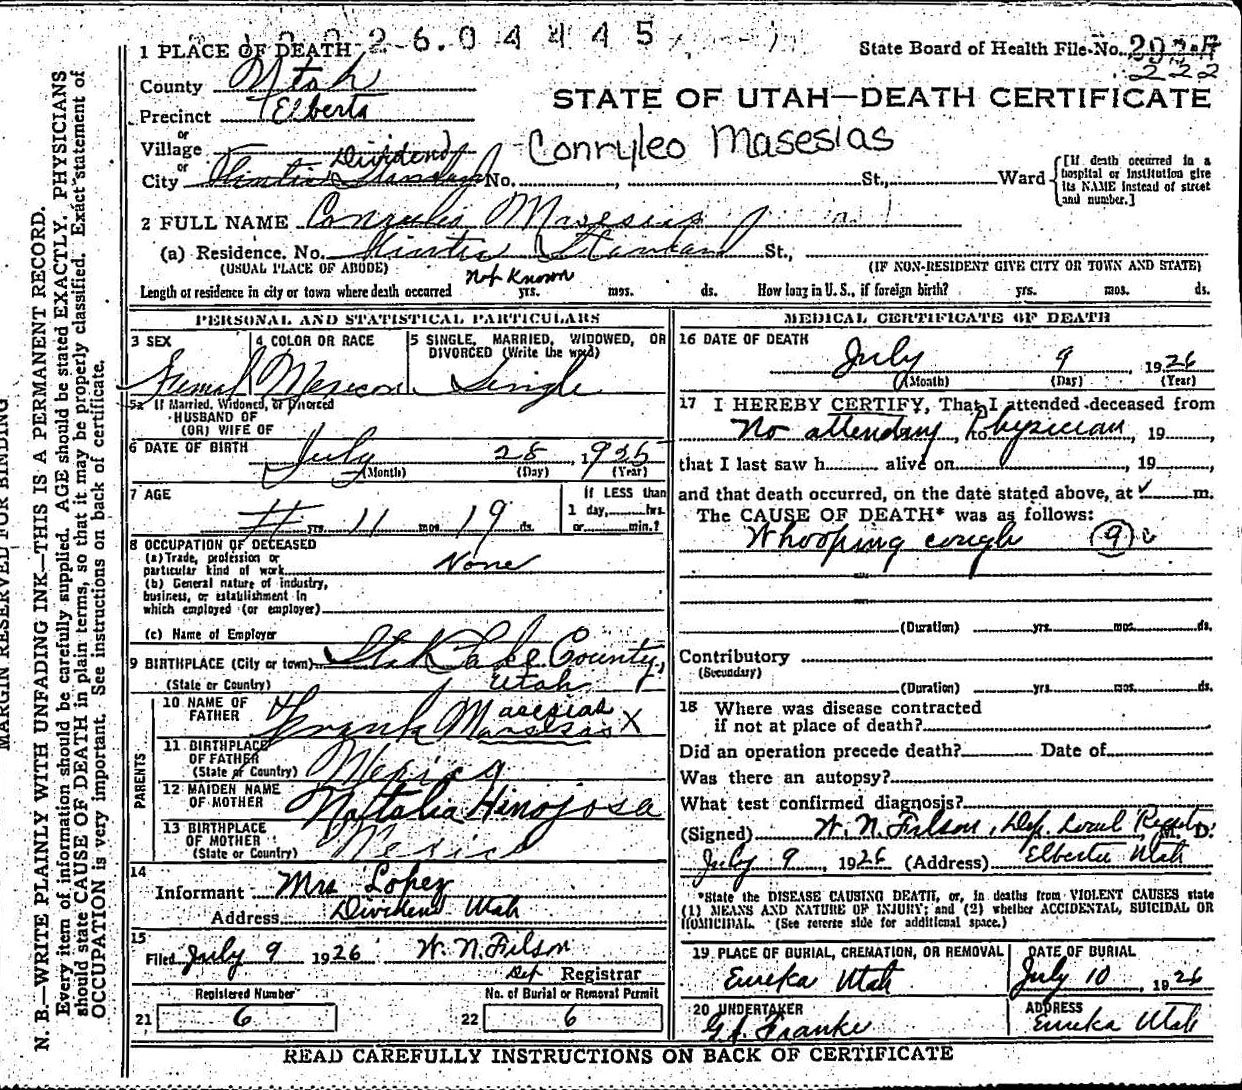 2604445
1 PLACE OF DEATH
State Board of Health File No. 222
County Utah
STATE OF UTAH—DEATH CERTIFICATE
Precinct Elberta
or
Village Dividend
Conryleo Masesias
or
City Tintic Standard No. , St., Ward
[If death occurred in a hospital or institution give its NAME instead of street and number.]
2 FULL NAME Masesias
(a) Residence. No. Tintic Standard St.,
(USUAL PLACE OF ABODE)
(IF NON-RESIDENT GIVE CITY OR TOWN AND STATE)
Length of residence in city or town where death occurred Not Known yrs. mos. ds. How long in U. S., if foreign birth? yrs. mos. ds.
PERSONAL AND STATISTICAL PARTICULARS
3 SEX
Femal
4 COLOR OR RACE
Mexican
5 SINGLE, MARRIED, WIDOWED, OR DIVORCED (Write the word)
Single
5a If Married, Widowed, or Divorced
HUSBAND OF
(OR) WIFE OF
6 DATE OF BIRTH
July 28, 1925
(Month) (Day) (Year)
7 AGE
yrs. 11 mos. 19 ds.
If LESS than
1 day, hrs.
or min.?
8 OCCUPATION OF DECEASED
(a) Trade, profession or
particular kind of work None
(b) General nature of industry,
business, or establishment in
which employed (or employer)
(c) Name of Employer
9 BIRTHPLACE (City or town) Salt Lake County,
(State or Country) Utah
PARENTS
10 NAME OF
FATHER Frank Masesias X
11 BIRTHPLACE
OF FATHER
(State or Country) Mexico
12 MAIDEN NAME
OF MOTHER Naftalia Hinojosa
13 BIRTHPLACE
OF MOTHER
(State or Country) Mexico
14
Informant Mrs Lopez
Address Dividend Utah
15
Filed July 9 1926 W. N. Filson
Dep Registrar
Registered Number
21 6
No. of Burial or Removal Permit
22 6
MEDICAL CERTIFICATE OF DEATH
16 DATE OF DEATH
July 9 , 1926
(Month) (Day) (Year)
17 I HEREBY CERTIFY, That I attended deceased from
No attending, to Physician, 19 ,
that I last saw h alive on , 19 ,
and that death occurred, on the date stated above, at m.
The CAUSE OF DEATH* was as follows:
Whooping cough 9
(Duration) yrs. mos. ds.
Contributory
(Secundary)
(Duration) yrs. mos. ds.
18 Where was disease contracted
if not at place of death?
Did an operation precede death? Date of
Was there an autopsy?
What test confirmed diagnosis?
(Signed) W. N. Filson, Dep. Local Registr M. D.
July 9, 1926 (Address) Elberta Utah
*State the DISEASE CAUSING DEATH, or, in deaths from VIOLENT CAUSES state
(1) MEANS AND NATURE OF INJURY; and (2) whether ACCIDENTAL, SUICIDAL OR
HOMICIDAL. (See reverse side for additional space.)
19 PLACE OF BURIAL, CREMATION, OR REMOVAL
Eureka Utah
DATE OF BURIAL
July 10, 1926
20 UNDERTAKER
Franke
ADDRESS
Eureka Utah
READ CAREFULLY INSTRUCTIONS ON BACK OF CERTIFICATE
MARGIN RESERVED FOR BINDING
N. B.—WRITE PLAINLY WITH UNFADING INK—THIS IS A PERMANENT RECORD.
Every item of information should be carefully supplied. AGE should be stated EXACTLY. PHYSICIANS
should state CAUSE OF DEATH in plain terms, so that it may be properly classified. Exact statement of
OCCUPATION is very important. See instructions on back of certificate.